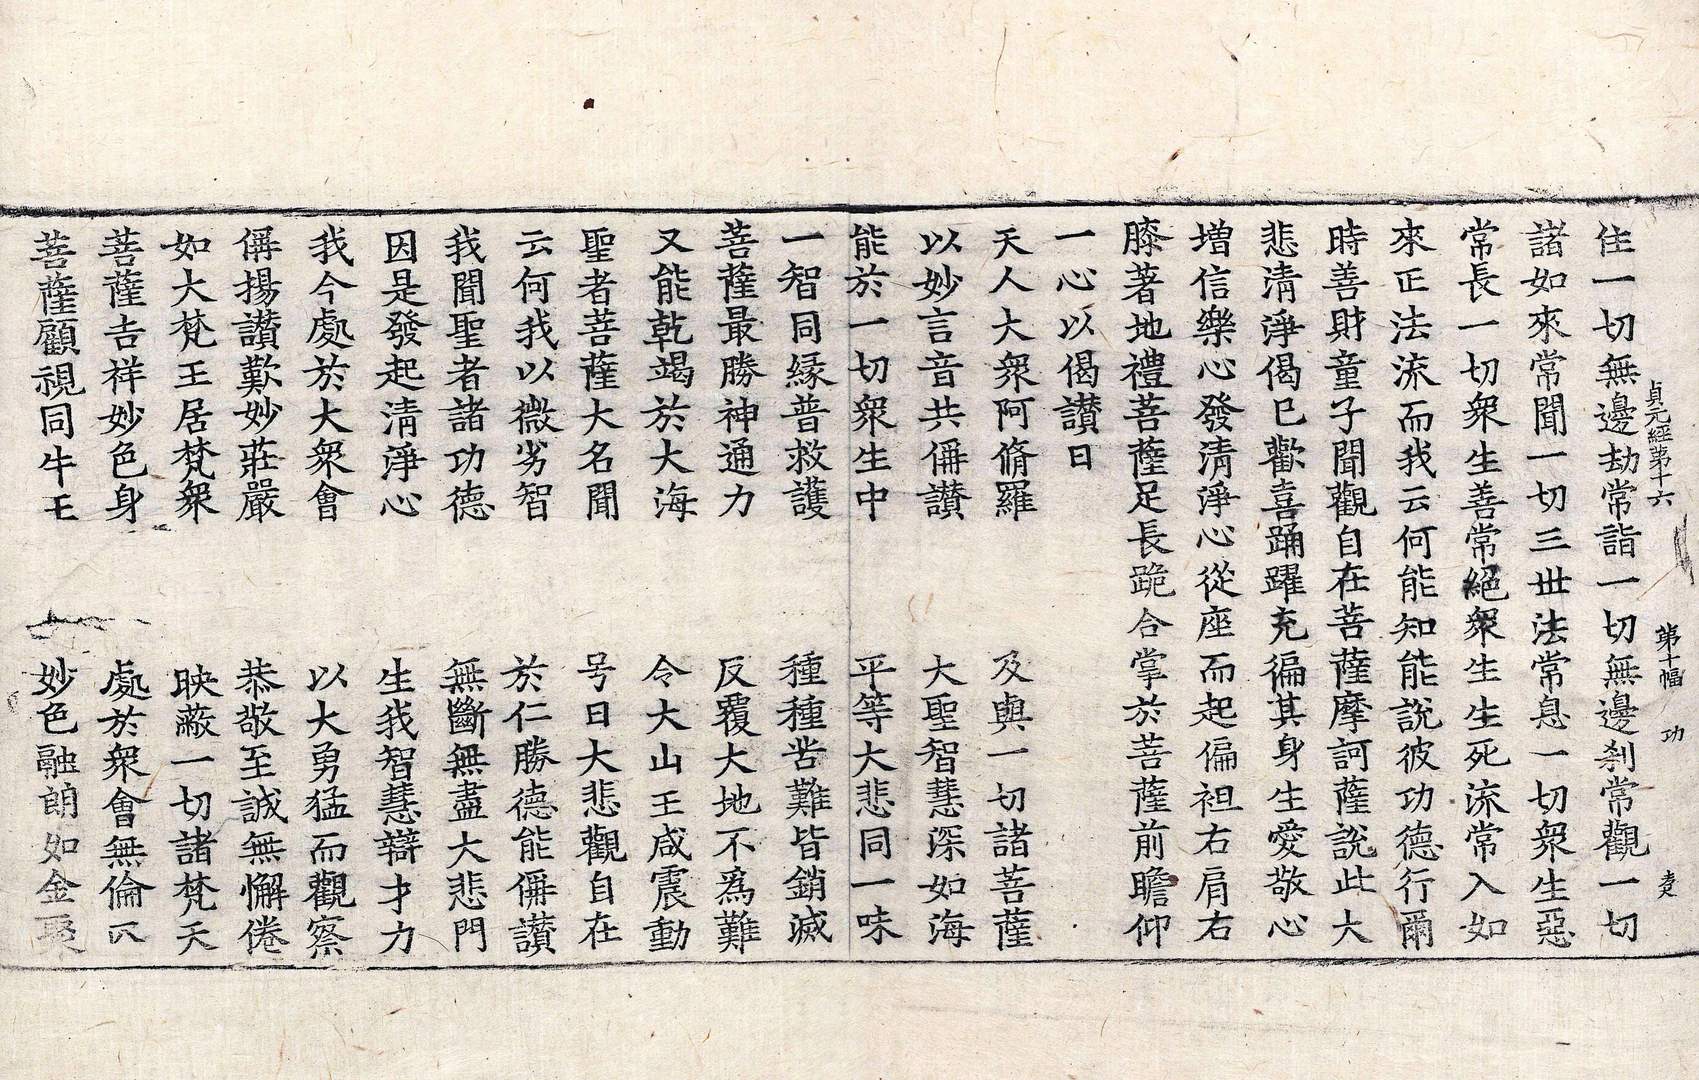 貞元經第十六
第十幅　功
住一切無邊劫常詣一切無邊刹常觀一切
諸如來常聞一切三世法常息一切衆生惡
常長一切衆生善常絕衆生生死流常入如
來正法流而我云何能知能說彼功德行爾
時善財童子聞觀自在菩薩摩訶薩說此大
悲清淨偈已歡喜踊躍充徧其身生愛敬心
增信樂心發清淨心從座而起偏袒右肩右
膝著地禮菩薩足長跪合掌於菩薩前瞻仰
一心以偈讃曰
天人大衆阿脩羅　及與一切諸菩薩
以妙言音共偁讃　大聖智慧深如海
能於一切衆生中　平等大悲同一味
一智同緣普救護　種種苦難皆銷滅
菩薩最勝神通力　反覆大地不爲難
又能乾竭於大海　令大山王咸震動
聖者菩薩大名聞　号曰大悲觀自在
云何我以微劣智　於仁勝德能偁讃
我聞聖者諸功德　無斷無盡大悲門
因是發起清淨心　生我智慧辯才力
我今處於大衆會　以大勇猛而觀察
偁揚讃歎妙莊嚴　恭敬至誠無懈倦
如大梵王居梵衆　映蔽一切諸梵天
菩薩吉祥妙色身　處於衆會無倫匹
菩薩顧視同牛王　妙色融朗如金聚